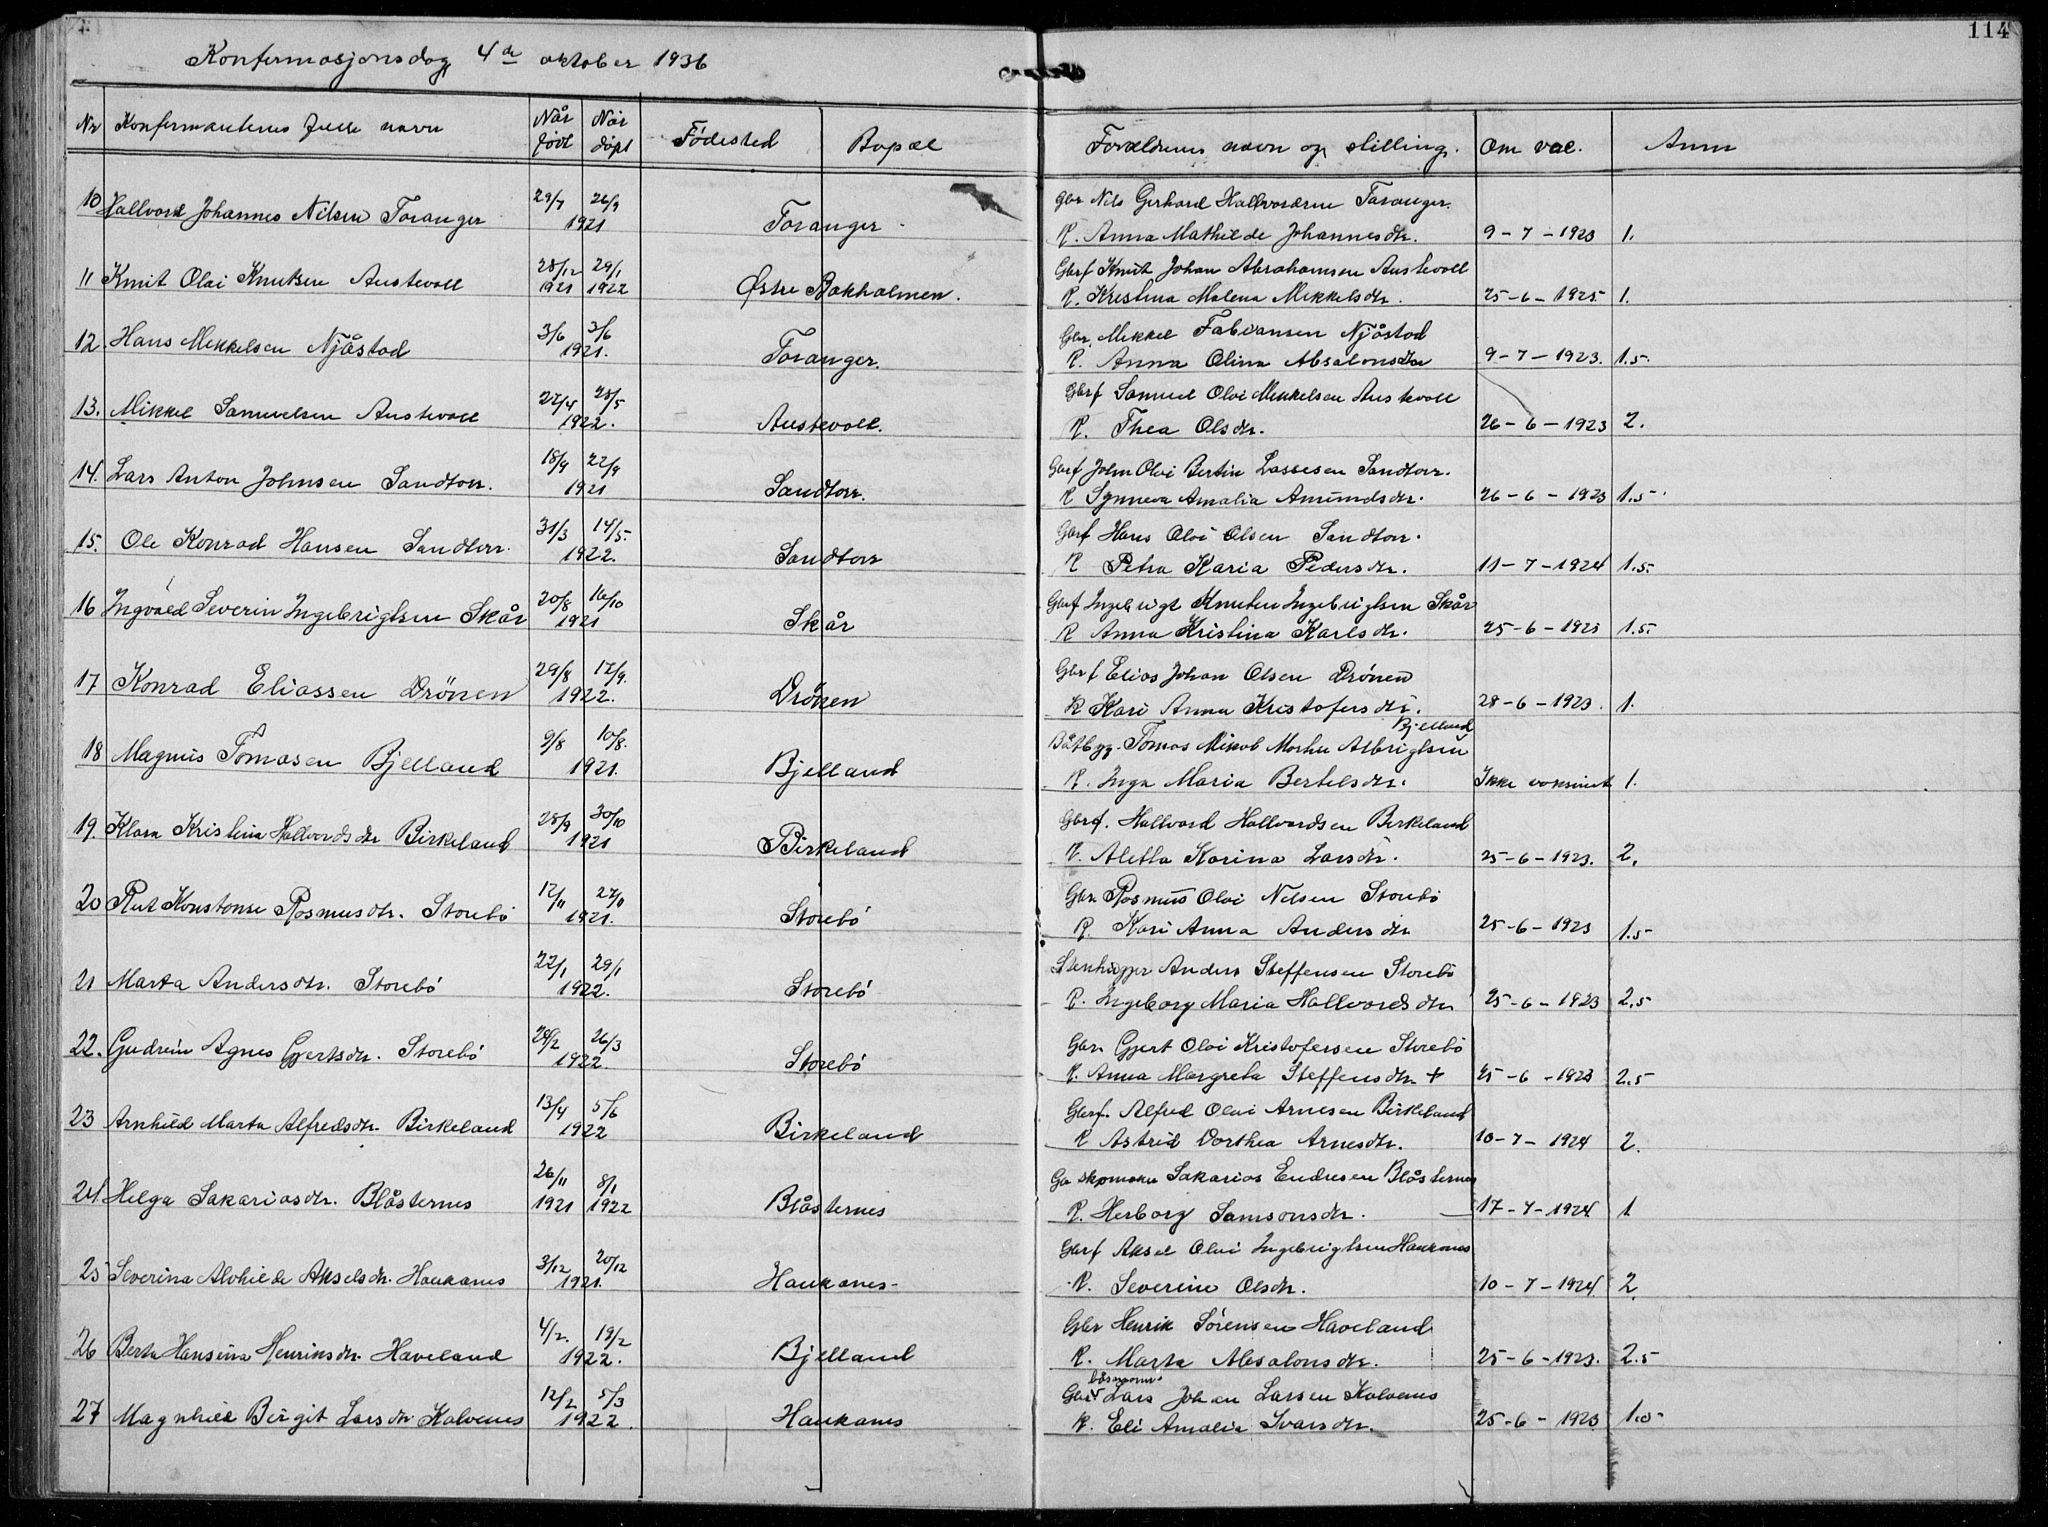 114
Konfermasjonsdag 4de oktober 1936
Nr Konfermantenes fulle navn Når født Når døpt Fødested Bopæl Foreldrenes navn og stilling. Om vac. Anm
10 Hallvard Johannes Nilsen Toranger 29/7 26/9 1921 Toranger Gbr Nils Gerhard Hallvardsen Toranger.
R. Anna Mathilde Johannesdtr. 9-7-1923 1.
11 Knut Olai Knutsen Austevoll 28/12 1921 29/1 1922 Østre Bakholmen. Gbrf Knut Johan Abrahamsen Austevoll
R. Kristina Malena Mikkelsdtr. 25-6-1925 1.
12. Hans Mikkelsen Njåstad 3/6 3/6 1921. Toranger. Gbr. Mikkel Fabiansen Njåstad
R. Anna Olina Absalonsdtr 9-7-1923. 1.5.
13. Mikkel Samuelsen Austevoll 27/4 28/5 1922. Austevoll. Gbrf Samuel Olai Mikkelsen Austevoll
R. Thea Olsdtr. 26-6-1923 2.
14. Lars Anton Johnsen Sandtorr. 18/9 22/9 1921 Sandtorr. Gbrf John Olai Bertin Lassesen Sandtorr.
R Synneva Amalia Amundsdtr. 26-6-1923 1.5.
15. Ole Konrad Hansen Sandtorr. 31/3 14/5. 1922. Sandtorr Gbrf Hans Olai Olsen Sandtorr.
R Petra Karia Pedersdtr. 11-7-1924 1.5.
16 Ingvald Severin Ingebrigtsen Skår 20/8 16/10 1921 Skår Gbrf Ingebrigt Knutsen Ingebrigtsen Skår
R Anna Kristina Karlsdtr. 25-6-1923 1.5.
17 Konrad Eliassen Drönen 29/8 17/9. 1922. Drönen Gbrf Elias Johan Olsen Drönen
R Kari Anna Kristofersdtr. 28-6-1923. 1.
Bjelland
18 Magnus Tomasen Bjelland 9/8 10/8. 1921. Bjelland Båtbyg. Tomas Mikal Albrigtsen
R. Inga Maria Bertelsdtr. Ikke vaksinert 1.
19. Klara Kristina Hallvardsdtr Birkeland 28/9 30/10 1921 Birkeland Gbrf. Hallvard Hallvardsen Birkeland
R. Aletta Karina Larsdtr. 25-6-1923. 2.
20 Rut Konstanse Rasmusdtr. Storebö 12/11 27/11 1921. Storebö Gbr. Rasmus Olai Nilsen Storebö
R. Kari Anna Andersdtr 25-6-1923 1.5
21 Marta Andersdtr. Storebö 22/1 29/1 1922. Storebö Stenhugger Anders Steffensen Storebö
R. Ingeborg Maria Hallvardsdtr 25-6-1923 2.5
22. Gudrun Agnes Gjertsdtr. Storebö 28/2 26/3 1922. Storebö Gbr. Gjert Olai Kristofersen Storebö
R. Anna Margreta Steffensdtr + 25-6-1923 2.5
23 Arnhild Marta Alfredsdtr. Birkeland 13/4 5/6 1922 Birkeland Gbrf. Alfred Olai Arnesen Birkeland
R Astrid Dorthea Arnesdtr. 10-7-1924 2.
24. Helga Sakariasdtr. Blåsternes 26/11 1921 8/1 1922 Blåsternes Gbr skomaker Sakarias Endresen Blåsternes
R. Herborg Samsonsdtr. 17-7-1924 1
25 Severina Alvhilde Akselsdtr. Haukanes 3/12 20/12 1921. Haukanes- Gbrf Aksel Olai Ingebrigtsen Haukanes
R. Severine Olsdtr. 10-7-1924 2.
26 Berta Hansina Henriksdtr. Haveland 4/2. 19/2 1922. Bjelland Gbr Henrik Sörensen Haveland
R. Marta Absalonsdtr. 25-6-1923. 2.5
27 Magnhild Birgit Larsdtr Kalvenes 12/2 5/3 1922. Haukanes Lars Johan Larsen Kalvenes
R. Eli Amalia Ivarsdtr. 25-6-1923 1.5